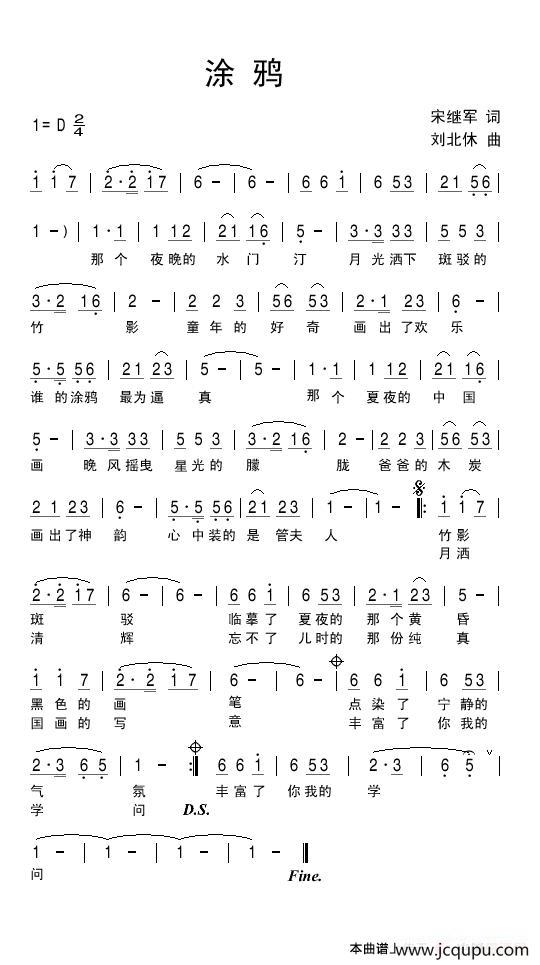 涂 鸦
1= D 2/4
宋继军 词
刘北休 曲
1 1 7 | 2·2 1 7 | 6 – | 6 – | 6 6 1 | 6 5 3 | 2 1 5 6 |
1 – ) | 1·1 | 1 1 2 | 2 1 1 6 | 5 – | 3·3 3 3 | 5 5 3 |
那 个 夜晚的 水 门 汀 月 光 洒下 斑 驳的
3·2 1 6 | 2 – | 2 2 3 | 5 6 5 3 | 2·1 2 3 | 6 – |
竹 影 童 年 的 好 奇 画 出 了欢 乐
5·5 5 6 | 2 1 2 3 | 5 – | 5 – | 1·1 | 1 1 2 | 2 1 1 6 |
谁 的涂鸦 最为逼 真 那 个 夏夜的 中 国
5 – | 3·3 3 3 | 5 5 3 | 3·2 1 6 | 2 – | 2 2 3 | 5 6 5 3 |
画 晚 风摇曳 星光的 朦 胧 爸爸的 木 炭
2 1 2 3 | 6 – | 5·5 5 6 | 2 1 2 3 | 1 – | 1 – ‖: 1 1 7 |
画出了神 韵 心 中装的 是 管夫 人 竹影
月洒
2·2 1 7 | 6 – | 6 – | 6 6 1 | 6 5 3 | 2·1 2 3 | 5 – |
斑 驳 临摹了 夏夜的 那 个黄 昏
清 辉 忘不了 儿时的 那 份纯 真
1 1 7 | 2·2 1 7 | 6 – | 6 – | 6 6 1 | 6 5 3 |
黑 色 的 画 笔 点 染 了 宁 静的
国 画 的 写 意 丰 富 了 你 我的
2·3 6 5 | 1 – :‖ 6 6 1 | 6 5 3 | 2·3 | 6 5 |
气 氛 丰 富 了 你 我的 学
学 问 D.S.
1 – | 1 – | 1 – | 1 – ‖
问 Fine.
本曲谱上
www.jcqupu.com